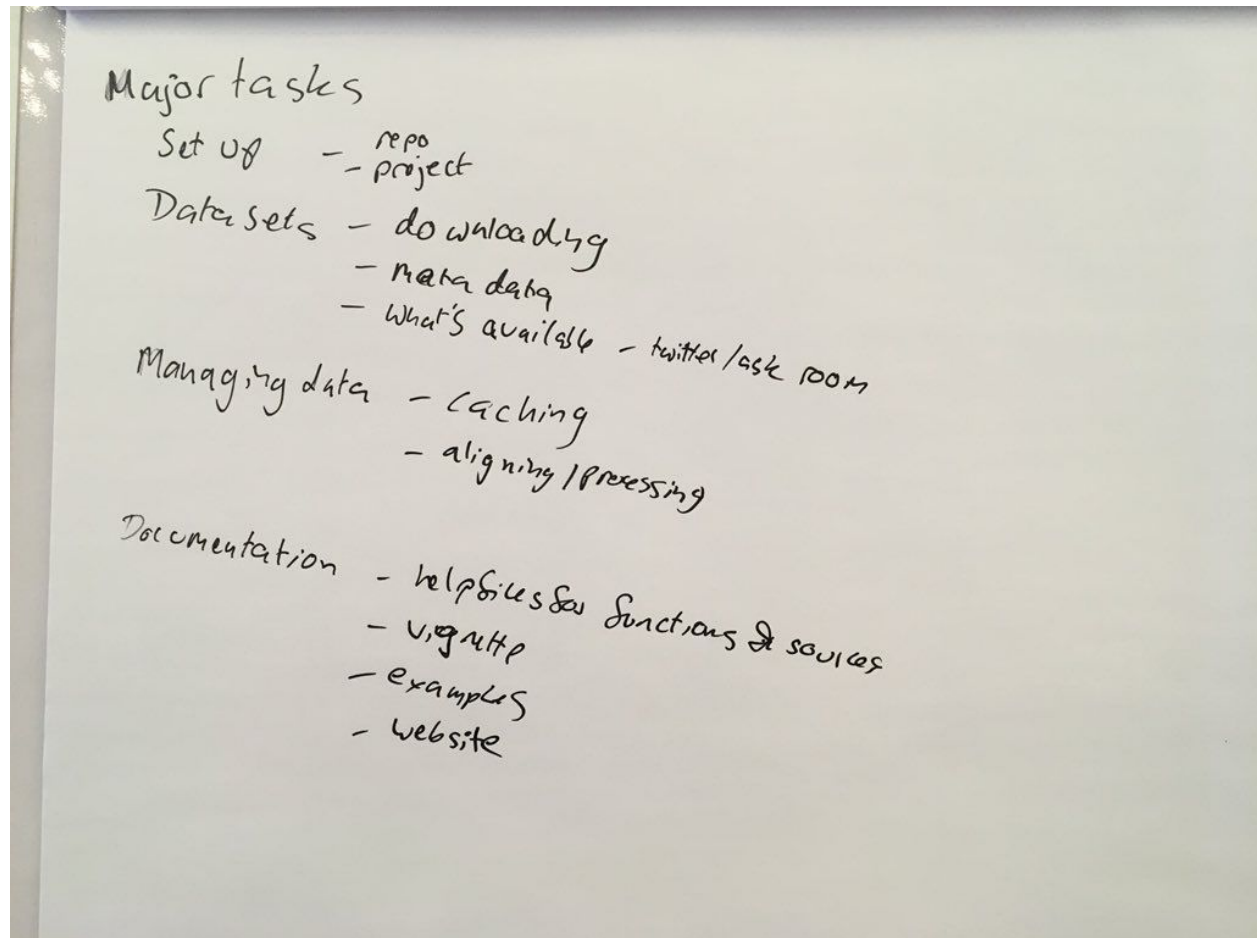 Major tasks
Set up - repo
- project
Data sets - downloading
- meta data
- what's available - twitter/ask room
Managing data - caching
- aligning/processing
Documentation - helpfiles for functions & sources
- vignette
- examples
- website